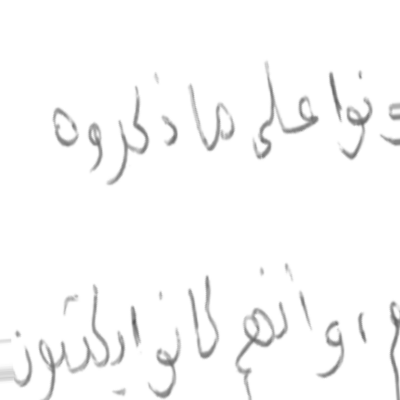 ونوا على ما ذكروه
م، وأنهم كانوا يكتبون